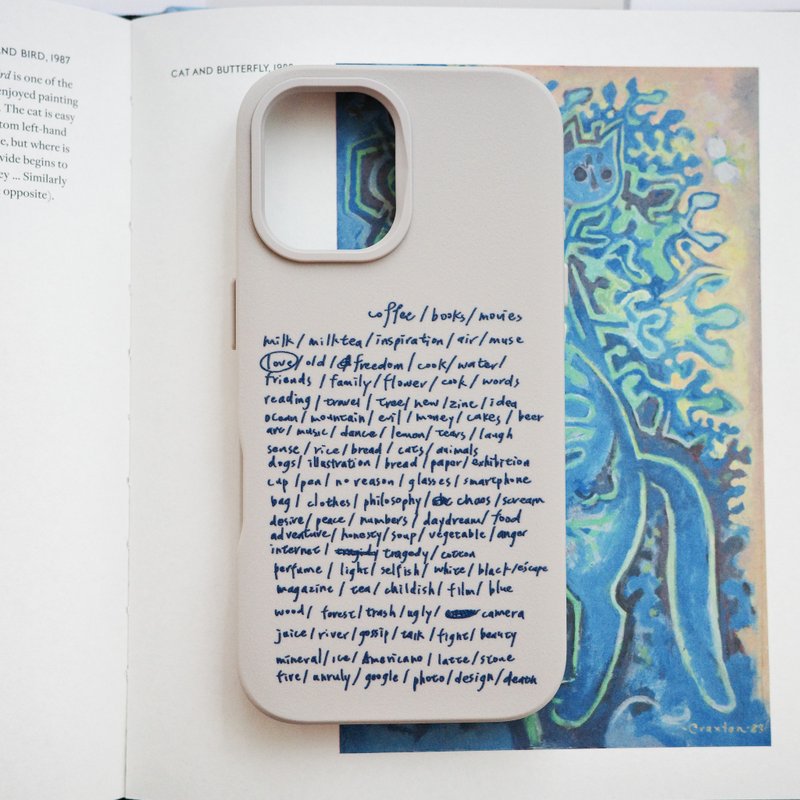 AND BIRD, 1987
ird is one of the
enjoyed painting
. The cat is easy
tom left-hand
e, but where is
vide begins to
ey ... Similarly
opposite).
CAT AND BUTTERFLY, 1988
coffee / books / movies
milk / milktea / inspiration / air / muse
love / old / freedom / cook / water /
friends / family / flower / cook / words
reading / travel / tree / new / zine / idea
ocean / mountain / evil / money / cakes / beer
art / music / dance / lemon / tears / laugh
sense / rice / bread / cats / animals
dogs / illustration / bread / paper / exhibition
cup / pen / no reason / glasses / smartphone
bag / clothes / philosophy / chaos / scream
desire / peace / numbers / daydream / food
adventure / honesty / soup / vegetable / anger
internet / tragedy / cotton
perfume / light / selfish / white / black / escape
magazine / tea / childish / film / blue
wood / forest / trash / ugly / camera
juice / river / gossip / talk / fight / beauty
mineral / ice / Americano / latte / stone
fire / unruly / google / photo / design / death
Craxton